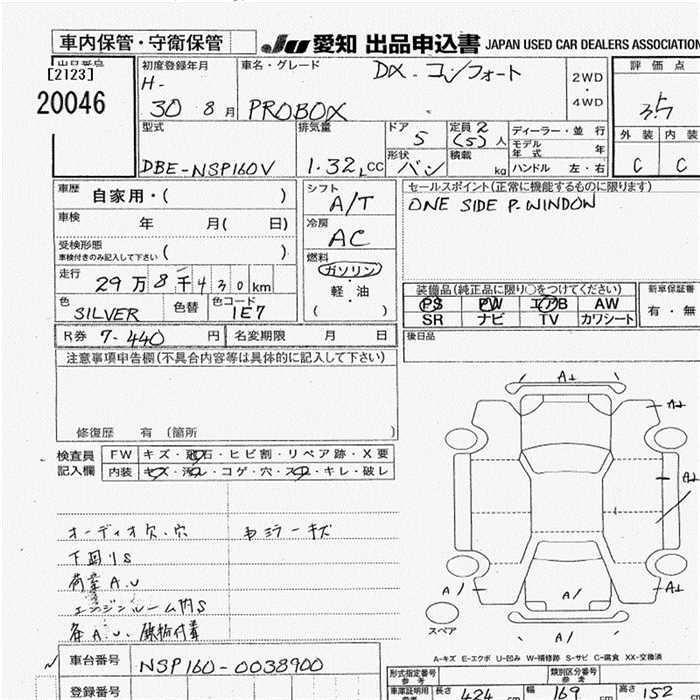 車内保管・守衛保管 JU 愛知 出品申込書 JAPAN USED CAR DEALERS ASSOCIATION
出品番号 初度登録年月 車名・グレード DX・コンフォート 2WD・4WD 評価点
[2123]
20046 H- 30 8月 PROBOX 3.5
型式 排気量 ドア 5 定員 2(5)人 ディーラー・並行 外装 内装
DBE-NSP160V 1.32L CC 形状 バン 積載 kg モデル年式 年 C C
ハンドル 左・右
車歴 自家用・( ) シフト A/T セールスポイント(正常に機能するものに限ります)
ONE SIDE P.WINDOW
車検 年 月( 日) 冷房 AC
受検形態 車検付きのみ記入して下さい ( ) 燃料 ガソリン
走行 29万8千430km 軽・油
( )
装備品(純正品に限り○をつけてください) 新車保証書
PS PW エアB AW 有・無
SR ナビ TV カワシート
色 SILVER 色替 色コード 1E7
R券 7-440 円 名変期限 月 日 後日品
注意事項申告欄(不具合内容等は具体的に記入して下さい)
修復歴 有 (箇所
検査員記入欄 FW キズ・飛石・ヒビ割・リペア跡・X要
内装 キズ・汚レ・コゲ・穴・スレ・キレ・破レ
オーディオ欠.穴 ルミラーキズ
下回りS
荷室A.U
エンジンルーム内S
A1 A1 A1 A1 A/ A/ A/
スペア
A-キズ E-エクボ U-凹み W-補修跡 S-サビ C-腐食 XX-交換済
車台番号 NSP160-0038900
登録番号
形式指定番号 参考 類別区分番号 参考
車庫証明用 参考 長さ 424 cm 幅 169 cm 高さ 152 cm